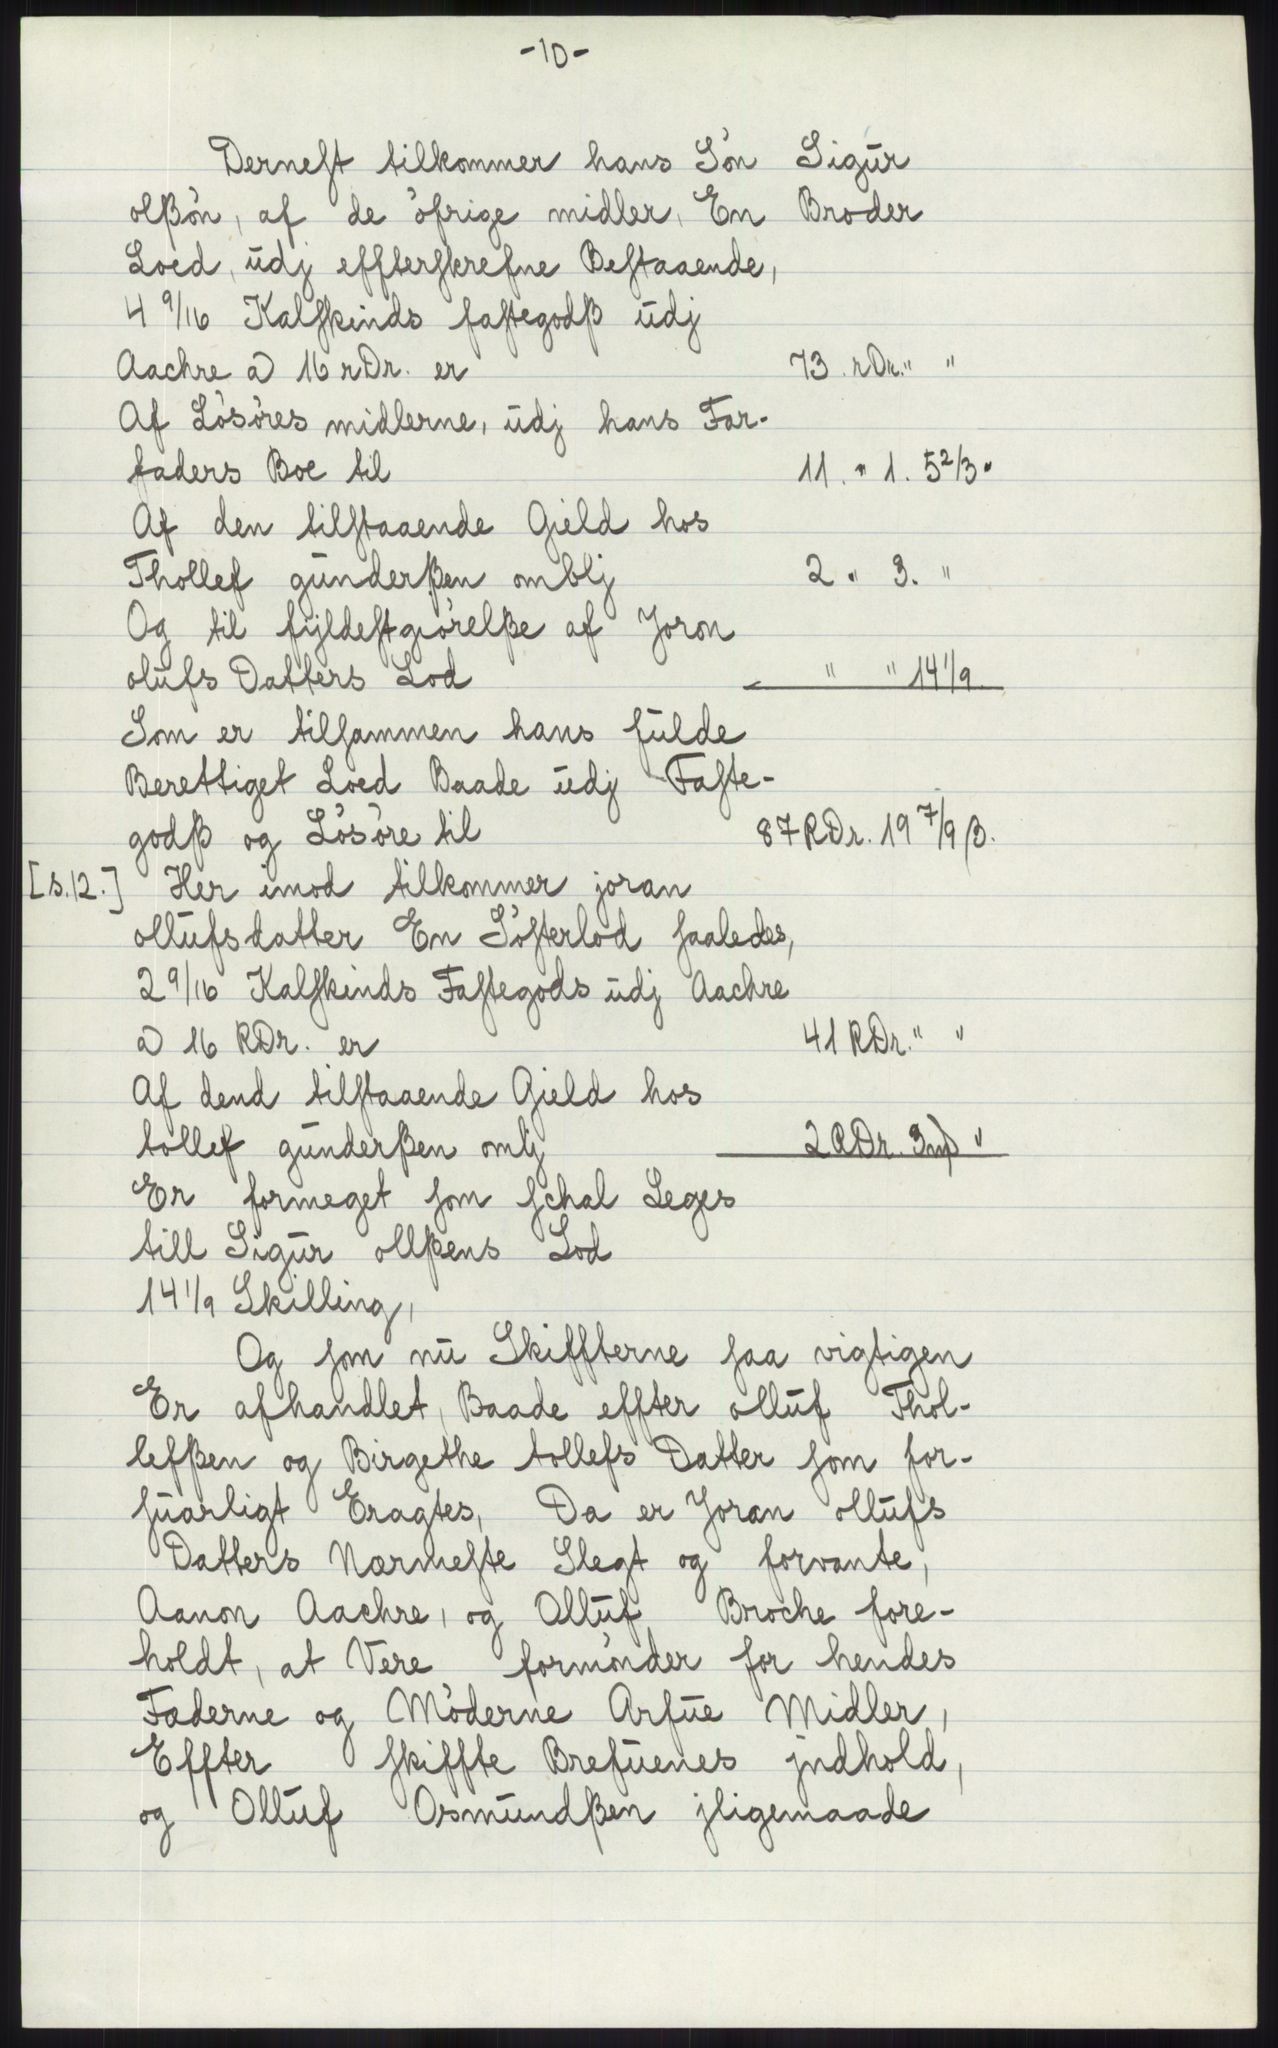 -10-
Dernest tilkommer hans Sön Sigür
olßön, af de öfrige midler, En Broder
Loed, üdj effterskrefne Bestaaende,
4 9/16 Kalfskinds fastegodß üdj
Aachre a 16 rDr. er 73. rDr. " "
Af Lösöres midlerne, üdj hans Far-
faders Boe til 11. " 1. 5 2/3 "
Af den tilstaaende Gield hos
Thollef günderßen omblj 2 " 3. "
Og til fÿldestgiörelße af Joron
olüfs Datters Lod " " 14 1/9
Som er tilsammen hans fülde
Berettiget Loed Baade üdj Faste-
godß og Lösöre til 87 RDr. 19 7/9 β.
[s.12.] Her imod tilkommer joran
ollüfsdatter En Sösterlod saaledes,
2 9/16 Kalfskinds Fastegods üdj Aachre
a 16 RDr. er 41 RDr. " "
Af dend tilstaaende Gield hos
tollef günderßen omlj 2 RDr. 3 mþ "
Er formeget som schal Leges
till Sigür ollßens Lod
14 1/9 Skilling,
Og som nü Skiffterne saa vigtigen
Er afhandlet, Baade effter ollüf Thol-
lefßen og Birgethe tollefs Datter som for-
süarligt Eragtes, Da er Joran ollüfs
Datters Nærmeste Slegt og forvante,
Aanon Aachre, og Ollüf Broche fore-
holdt, at Vere formönder for hendes
Fæderne og Möderne Arfüe Midler,
Effter skiffte Brefüenes jndhold,
og Ollüf Osmündßen jligemaade